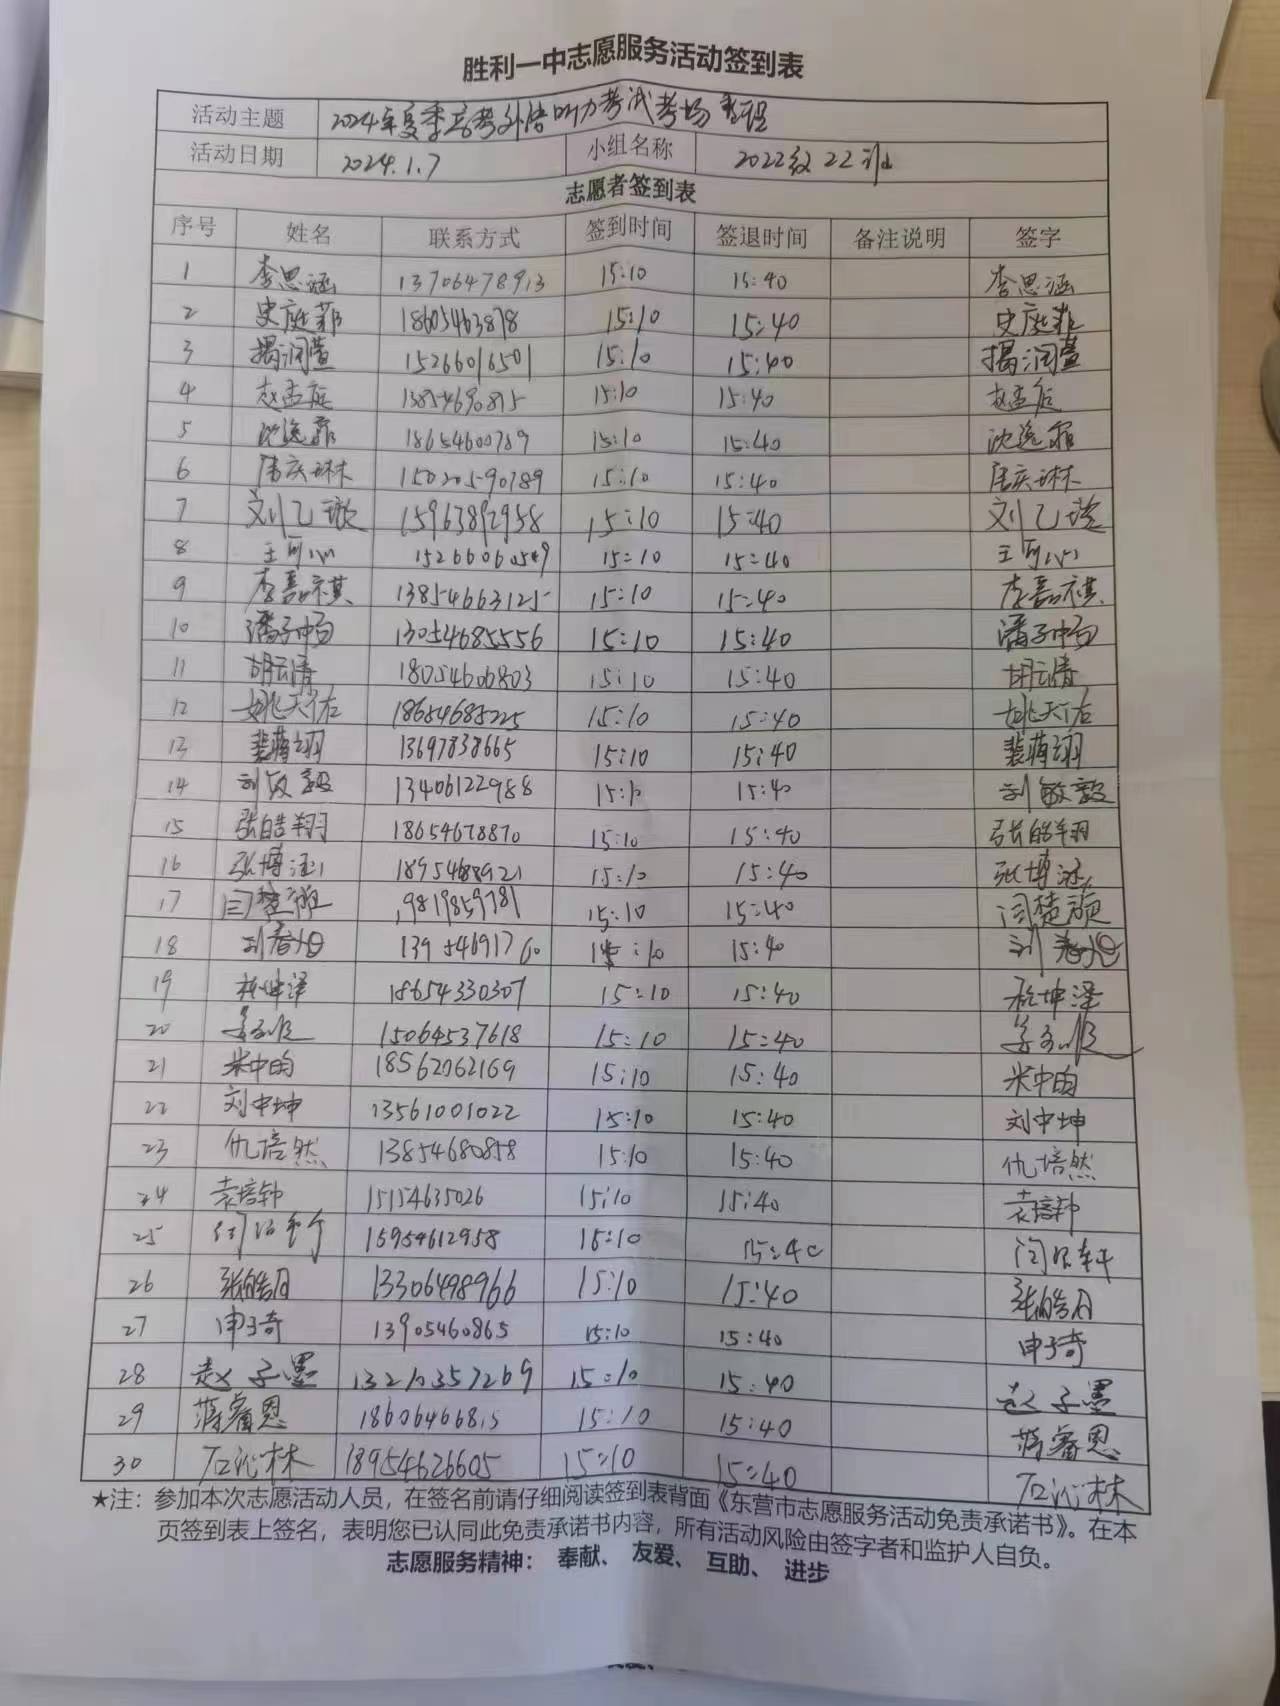 胜利一中志愿服务活动签到表
活动主题 2024年夏季高考外语听力考试考场整理
活动日期 2024.1.7 小组名称 2022级22班
志愿者签到表
序号 姓名 联系方式 签到时间 签退时间 备注说明 签字
1 李思涵 13706478913 15:10 15:40 李思涵
2 史庭菲 18605463878 15:10 15:40 史庭菲
3 揭润萱 15266016501 15:10 15:40 揭润萱
4 赵孟庭 13854690815 15:10 15:40 赵孟庭
5 沈逸菲 18654600789 15:10 15:40 沈逸菲
6 庆琳 15020590789 15:10 15:40 庆琳
7 刘乙璇 15963892958 15:10 15:40 刘乙璇
8 王可心 15266060549 15:10 15:40 王可心
9 李嘉祺 13854663125 15:10 15:40 李嘉祺
10 潘子 13054685556 15:10 15:40 潘子
11 胡云清 18054606803 15:10 15:40 胡云清
12 姚天佑 18654685225 15:10 15:40 姚天佑
13 裴蒋翊 13697838665 15:10 15:40 裴蒋翊
14 刘敏毅 13406122988 15:10 15:40 刘敏毅
15 张皓翔 18654678870 15:10 15:40 张皓翔
16 张博涵 18954688921 15:10 15:40 张博涵
17 闫楚颜 19819859781 15:10 15:40 闫楚颜
18 刘 13954691760 15:10 15:40 刘
19 坤泽 18654330307 15:10 15:40 坤泽
20 姜 15064537618 15:10 15:40 姜
21 米中昀 18562062169 15:10 15:40 米中昀
22 刘中坤 13561001022 15:10 15:40 刘中坤
23 仇培然 13854680858 15:10 15:40 仇培然
24 袁培钟 15154635026 15:10 15:40 袁培钟
25 闫 轩 15954612958 15:10 15:40 闫 轩
26 张皓月 13306498966 15:10 15:40 张皓月
27 申子奇 13905460865 15:10 15:40 申子奇
28 赵子墨 13210357269 15:10 15:40 赵子墨
29 蒋睿恩 18606466815 15:10 15:40 蒋睿恩
30 石沁林 18954626605 15:10 15:40 石沁林
★注：参加本次志愿活动人员，在签名前请仔细阅读签到表背面《东营市志愿服务活动免责承诺书》。在本
页签到表上签名，表明您已认同此免责承诺书内容，所有活动风险由签字者和监护人自负。
志愿服务精神： 奉献、 友爱、 互助、 进步